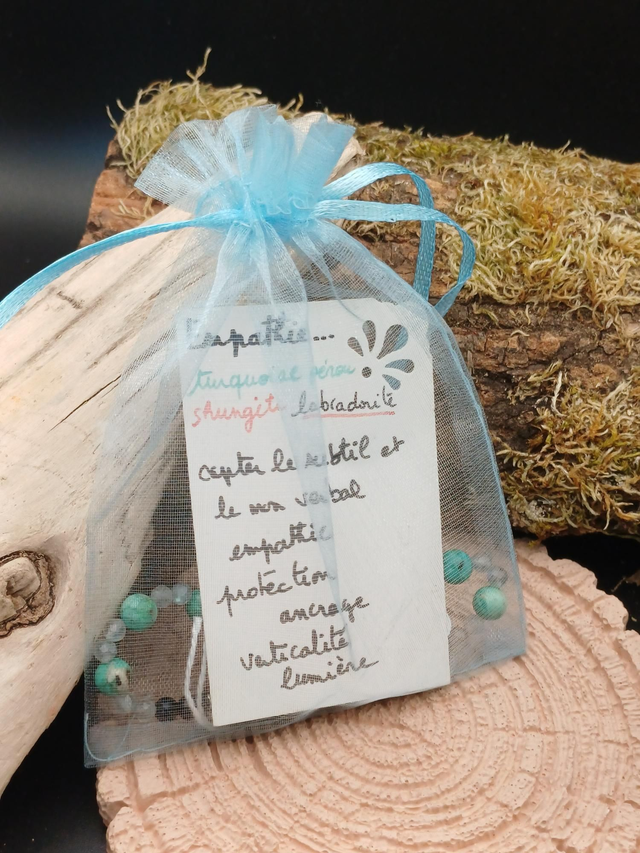 Empathie...
turquoise pérou
shungite labradorite
capter le subtil et
le non verbal
empathie
protection
ancrage
verticalité
lumière